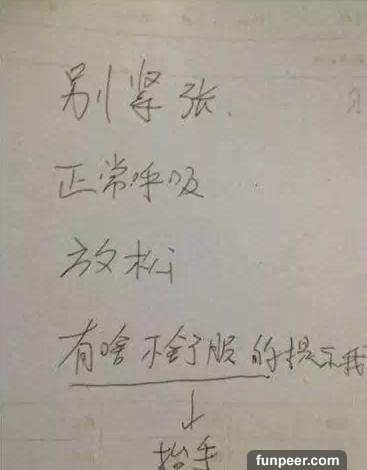 别紧张.
正常呼吸
放松
有啥不舒服的提示我
↓
抬手
funpeer.com